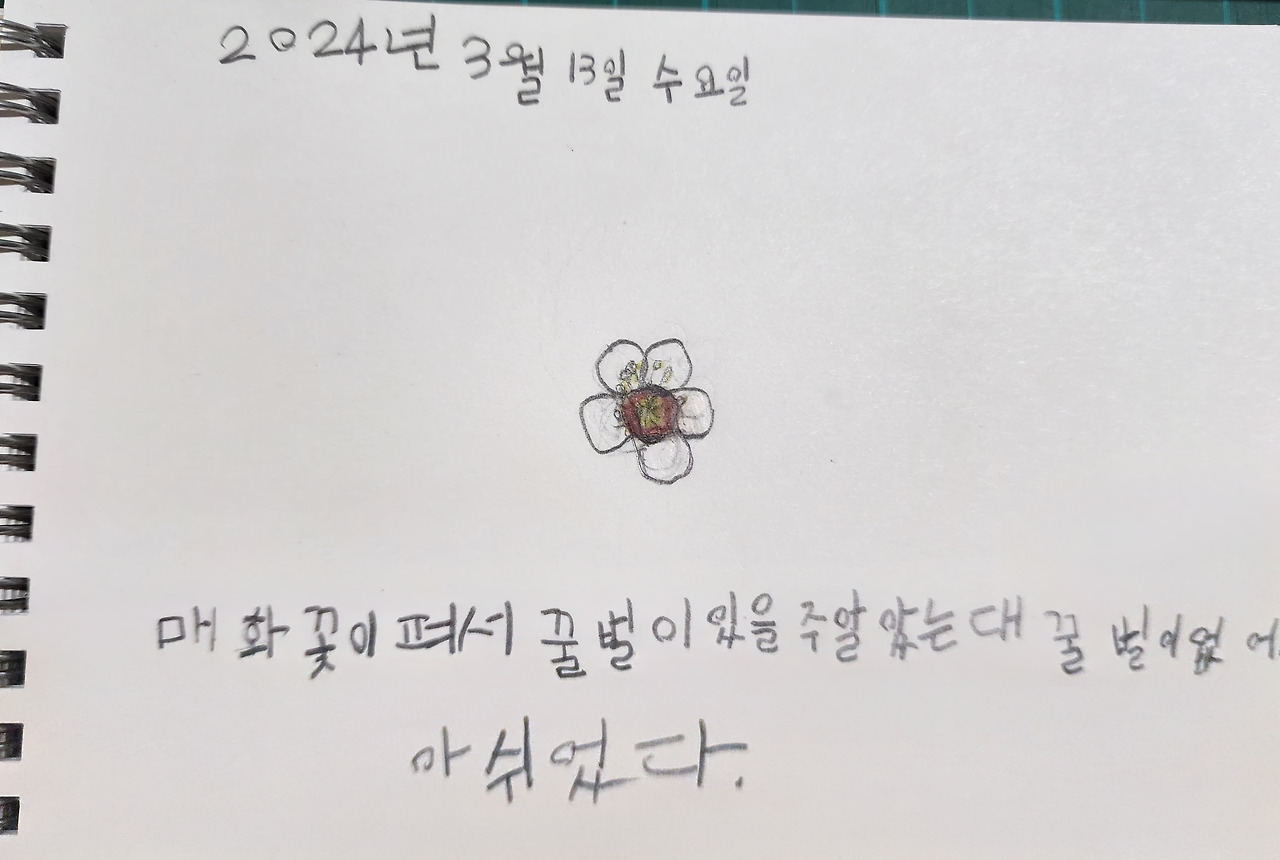 2024년 3월 13일 수요일
매화꽃이 펴서 꿀벌이 있을 주알 았는대 꿀벌이없
아쉬었다.